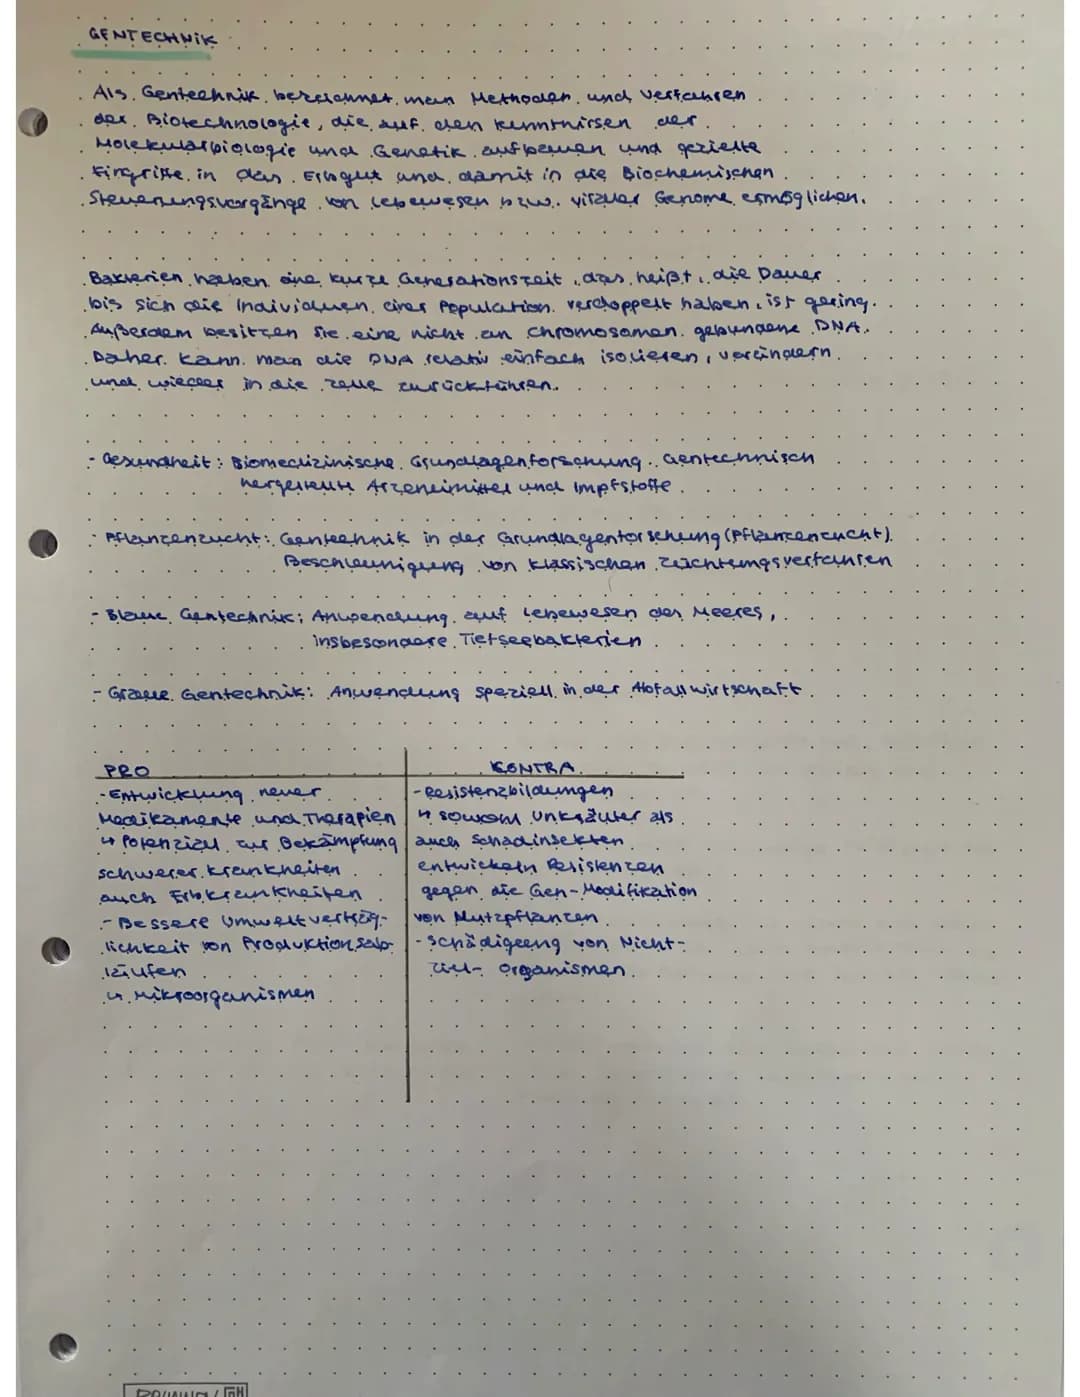 GENTECHNIK
Als Gentechnik bezeichnet man Methoden und Verfahren
der Biotechnologie, die auf den Kenntnissen der
Molekularbiologie und Genetik aufbauen und gezielte
Eingriffe in das Erbgut und damit in die Biochemischen
Steuerungsvorgänge von Lebewesen bzw. viraler Genome ermöglichen.
Bakterien haben eine kurze Generationszeit, das heißt, die Dauer
bis sich die Individuen einer Population verdoppelt haben, ist gering.
Außerdem besitzen sie eine nicht an Chromosomen gebundene DNA.
Daher kann man die DNA relativ einfach isolieren, verändern
und wieder in die Zelle zurückführen.
- Gesundheit: Biomedizinische Grundlagenforschung. Gentechnisch
hergestellte Arzneimittel und Impfstoffe
- Pflanzenzucht: Gentechnik in der Grundlagenforschung (Pflanzenzucht).
Beschleunigung von klassischen Züchtungsverfahren
- Blaue Gentechnik: Anwendung auf Lebewesen des Meeres,
insbesondere Tiefseebakterien
- Graue Gentechnik: Anwendung speziell in der Abfallwirtschaft
PRO
- Entwicklung neuer
Medikamente und Therapien
↳ Potenzial zur Bekämpfung
schwerer Krankheiten
auch Erbkrankheiten
- Bessere Umweltverträg-
lichkeit von Produktionsab-
läufen
↳ Mikroorganismen
KONTRA
- Resistenzbildungen
↳ sowohl Unkräuter als
auch Schadinsekten
entwickeln Resistenzen
gegen die Gen-Modifikation
von Nutzpflanzen
- Schädigung von Nicht-
Ziel-Organismen